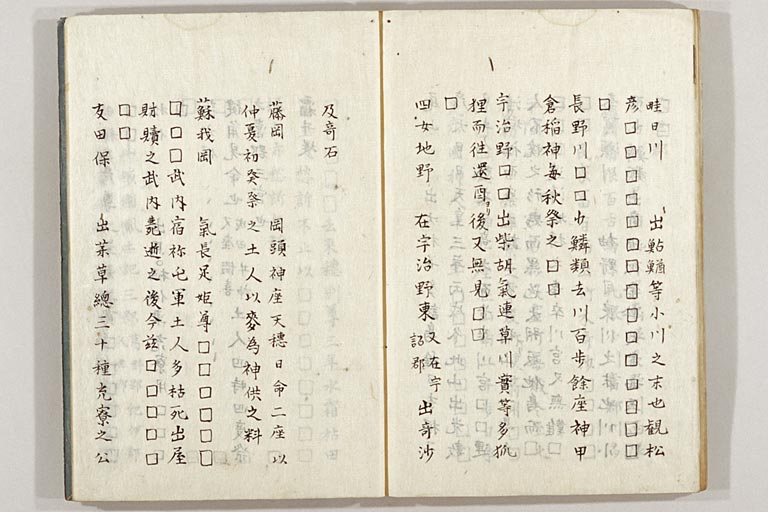 畦日川 出鮎鰌等小川之末也観松
彦□□□□□□□□□□□□□□
□
長野川□□少鱗類去川百歩餘座神甲
倉稲神毎秋祭之□□
宇治野□□出柴胡氣連草川實等多狐
狸而往還 後又無見□□
□
四女地野 在宇治野東 又在宇 郡 出奇沙
及奇石
藤岡 岡頭神座天穂日命二座以
仲夏初癸祭之土人以麥為神供之料
蘇我岡 氣長足姫尊□□□□□
□□□武内宿祢屯軍土人多枯死出屋
財贖之武内薨逝之後今 □□□□
□□
友田保 出菜草總三十種充寮之公